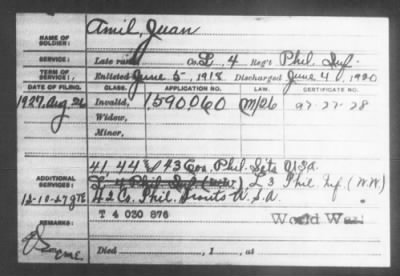 NAME OF SOLDIER: Amil, Juan
SERVICE: Late rank Co. L, 4 Reg't Phil. Inf.
TERM OF SERVICE: Enlisted June 5, 1918 Discharged June 4, 1920
DATE OF FILING. CLASS. APPLICATION NO. LAW. CERTIFICATE NO.
1927, Aug 26 Invalid, 1590060
Widow,
Minor,
ADDITIONAL SERVICES: 41 44 & 43 Cos, Phil. U.S.A.
L 4 Phil Inf. L 3 Phil Inf. (W.W.)
12-10-27 42 Co. Phil. Scouts U.S.A.
REMARKS: T 4 030 876 World War
Died , 1 , at